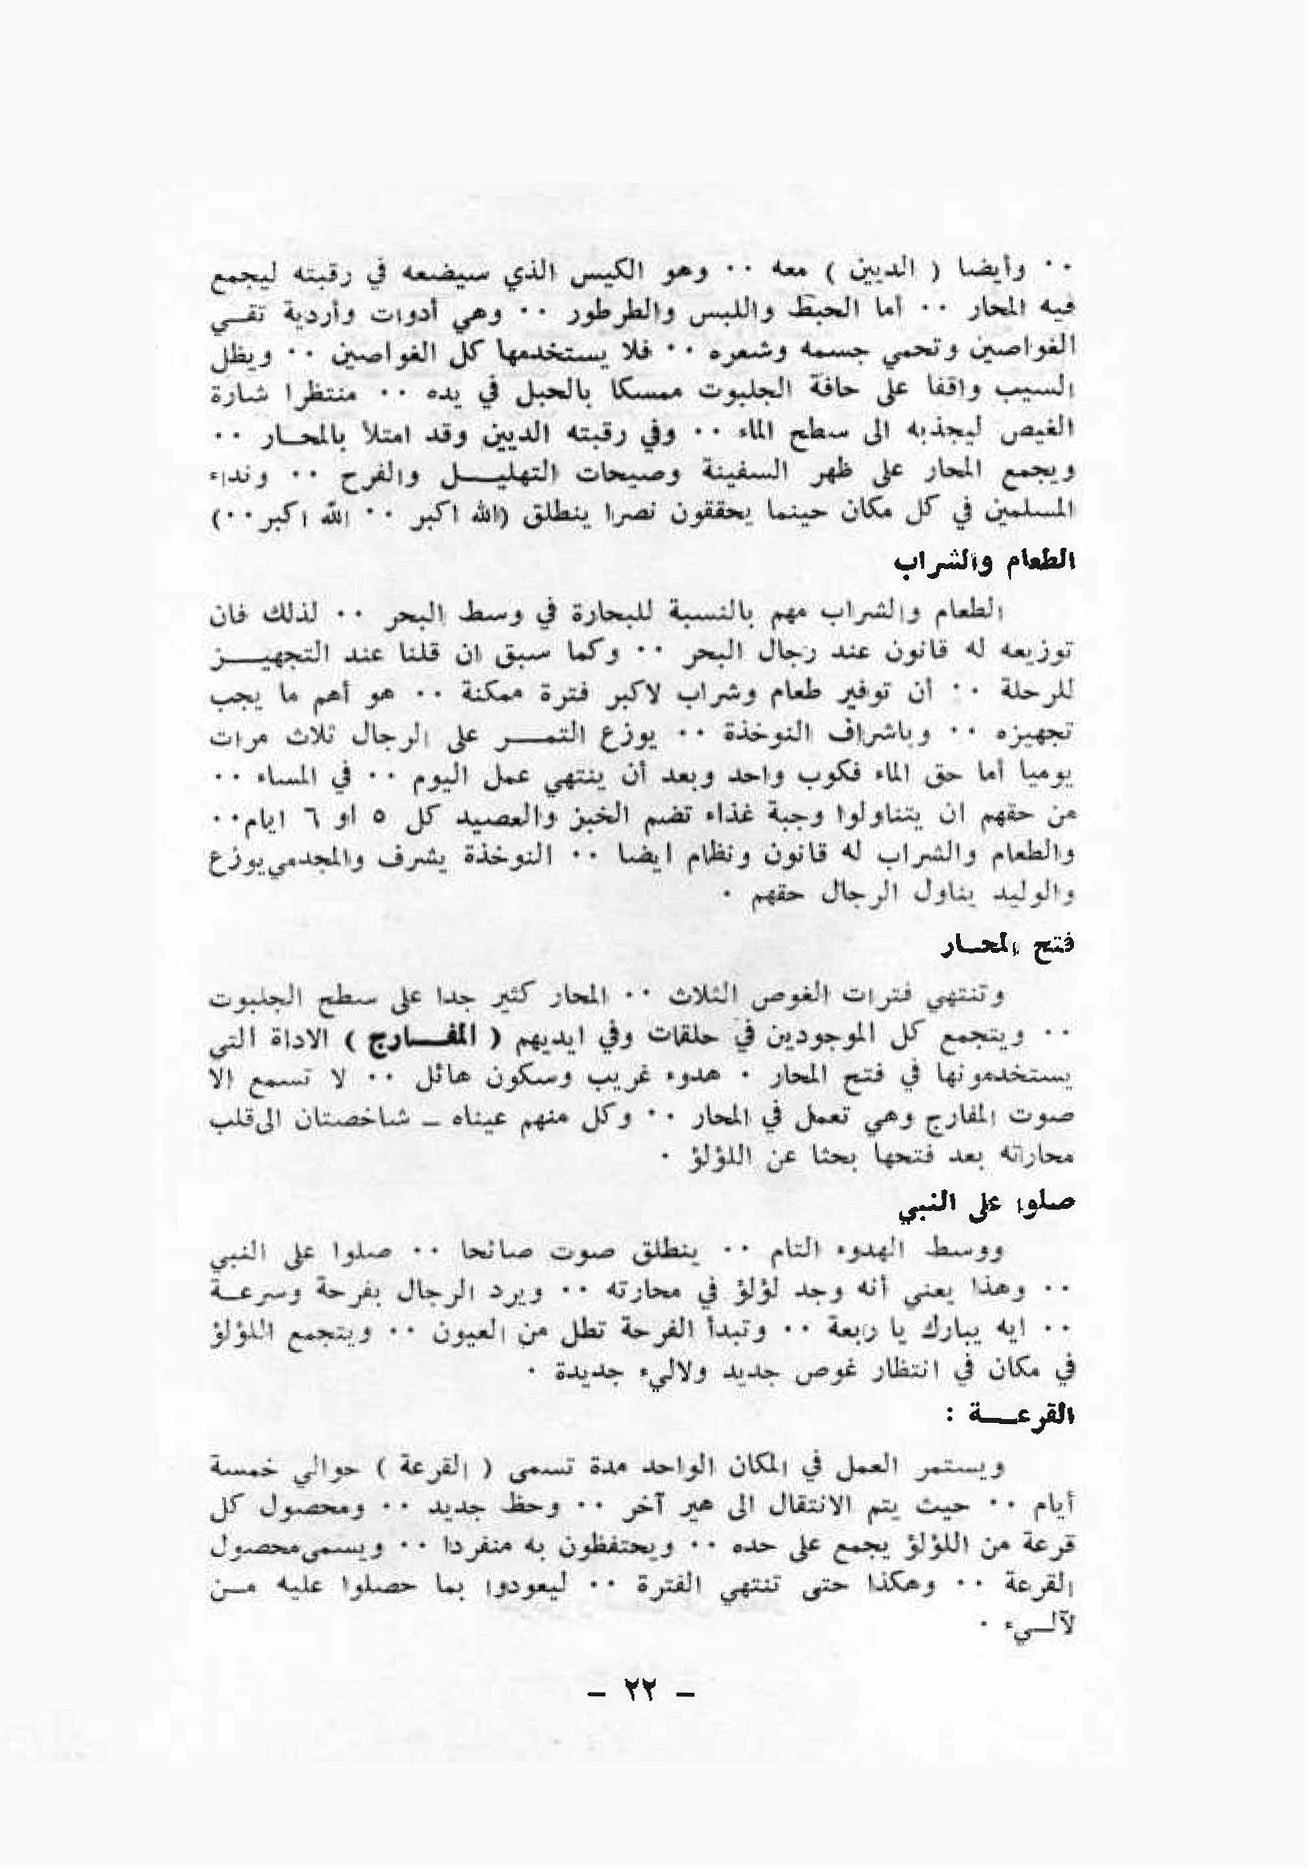 ٠٠ وأيضا ( الديين ) معه ٠٠ وهو الكيس الذي سيضعه في رقبته ليجمع
فيه المحار ٠٠ أما الحبط واللبس والطرطور ٠٠ وهي أدوات وأردية تقــي
الغواصين وتحمي جسمه وشعره ٠٠ فلا يستخدمها كل الغواصين ٠٠ ويظل
السيب واقفا على حافة الجلبوت ممسكا بالحبل في يده ٠٠ منتظرا شارة
الغيص ليجذبه الى سطح الماء ٠٠ وفي رقبته الديين وقد امتلأ بالمحــار ٠٠
ويجمع المحار على ظهر السفينة وصيحات التهليـــل والفرح ٠٠ ونداء
المسلمين في كل مكان حينما يحققون نصرا ينطلق (الله اكبر ٠٠ الله اكبر٠٠)
الطعام والشراب
الطعام والشراب مهم بالنسبة للبحارة في وسط البحر ٠٠ لذلك فان
توزيعه له قانون عند رجال البحر ٠٠ وكما سبق ان قلنا عند التجهيـــز
للرحلة ٠٠ أن توفير طعام وشراب لاكبر فترة ممكنة ٠٠ هو أهم ما يجب
تجهيزه ٠٠ وباشراف النوخذة ٠٠ يوزع التمــر على الرجال ثلاث مرات
يوميا أما حق الماء فكوب واحد وبعد أن ينتهي عمل اليوم ٠٠ في المساء ٠٠
من حقهم ان يتناولوا وجبة غذاء تضم الخبز والعصيد كل ٥ او ٦ ايام٠٠
والطعام والشراب له قانون ونظام ايضا ٠٠ النوخذة يشرف والمجدمي يوزع
والوليد يناول الرجال حقهم ٠
فتح المحــار
وتنتهي فترات الغوص الثلاث ٠٠ المحار كثير جدا على سطح الجلبوت
٠٠ ويتجمع كل الموجودين في حلقات وفي ايديهم ( المفــارج ) الاداة التي
يستخدمونها في فتح المحار ٠ هدوء غريب وسكون هائل ٠٠ لا تسمع الا
صوت المفارج وهي تعمل في المحار ٠٠ وكل منهم عيناه ــ شاخصتان الى قلب
محاراته بعد فتحها بحثا عن اللؤلؤ ٠
صلوا على النبي
ووسط الهدوء التام ٠٠ ينطلق صوت صائحا ٠٠ صلوا على النبي
٠٠ وهذا يعني أنه وجد لؤلؤ في محارته ٠٠ ويرد الرجال بفرحة وسرعــة
٠٠ ايه يبارك يا ربعة ٠٠ وتبدأ الفرحة تطل من العيون ٠٠ ويتجمع اللؤلؤ
في مكان في انتظار غوص جديد ولاليء جديدة ٠
القرعـــة :
ويستمر العمل في المكان الواحد مدة تسمى ( القرعة ) حوالي خمسة
أيام ٠٠ حيث يتم الانتقال الى هير آخر ٠٠ وحظ جديد ٠٠ ومحصول كل
قرعة من اللؤلؤ يجمع على حده ٠٠ ويحتفظون به منفردا ٠٠ ويسمى محصول
القرعة ٠٠ وهكذا حتى تنتهي الفترة ٠٠ ليعودوا بما حصلوا عليه مــن
لآلــيء ٠
– ٢٢ –